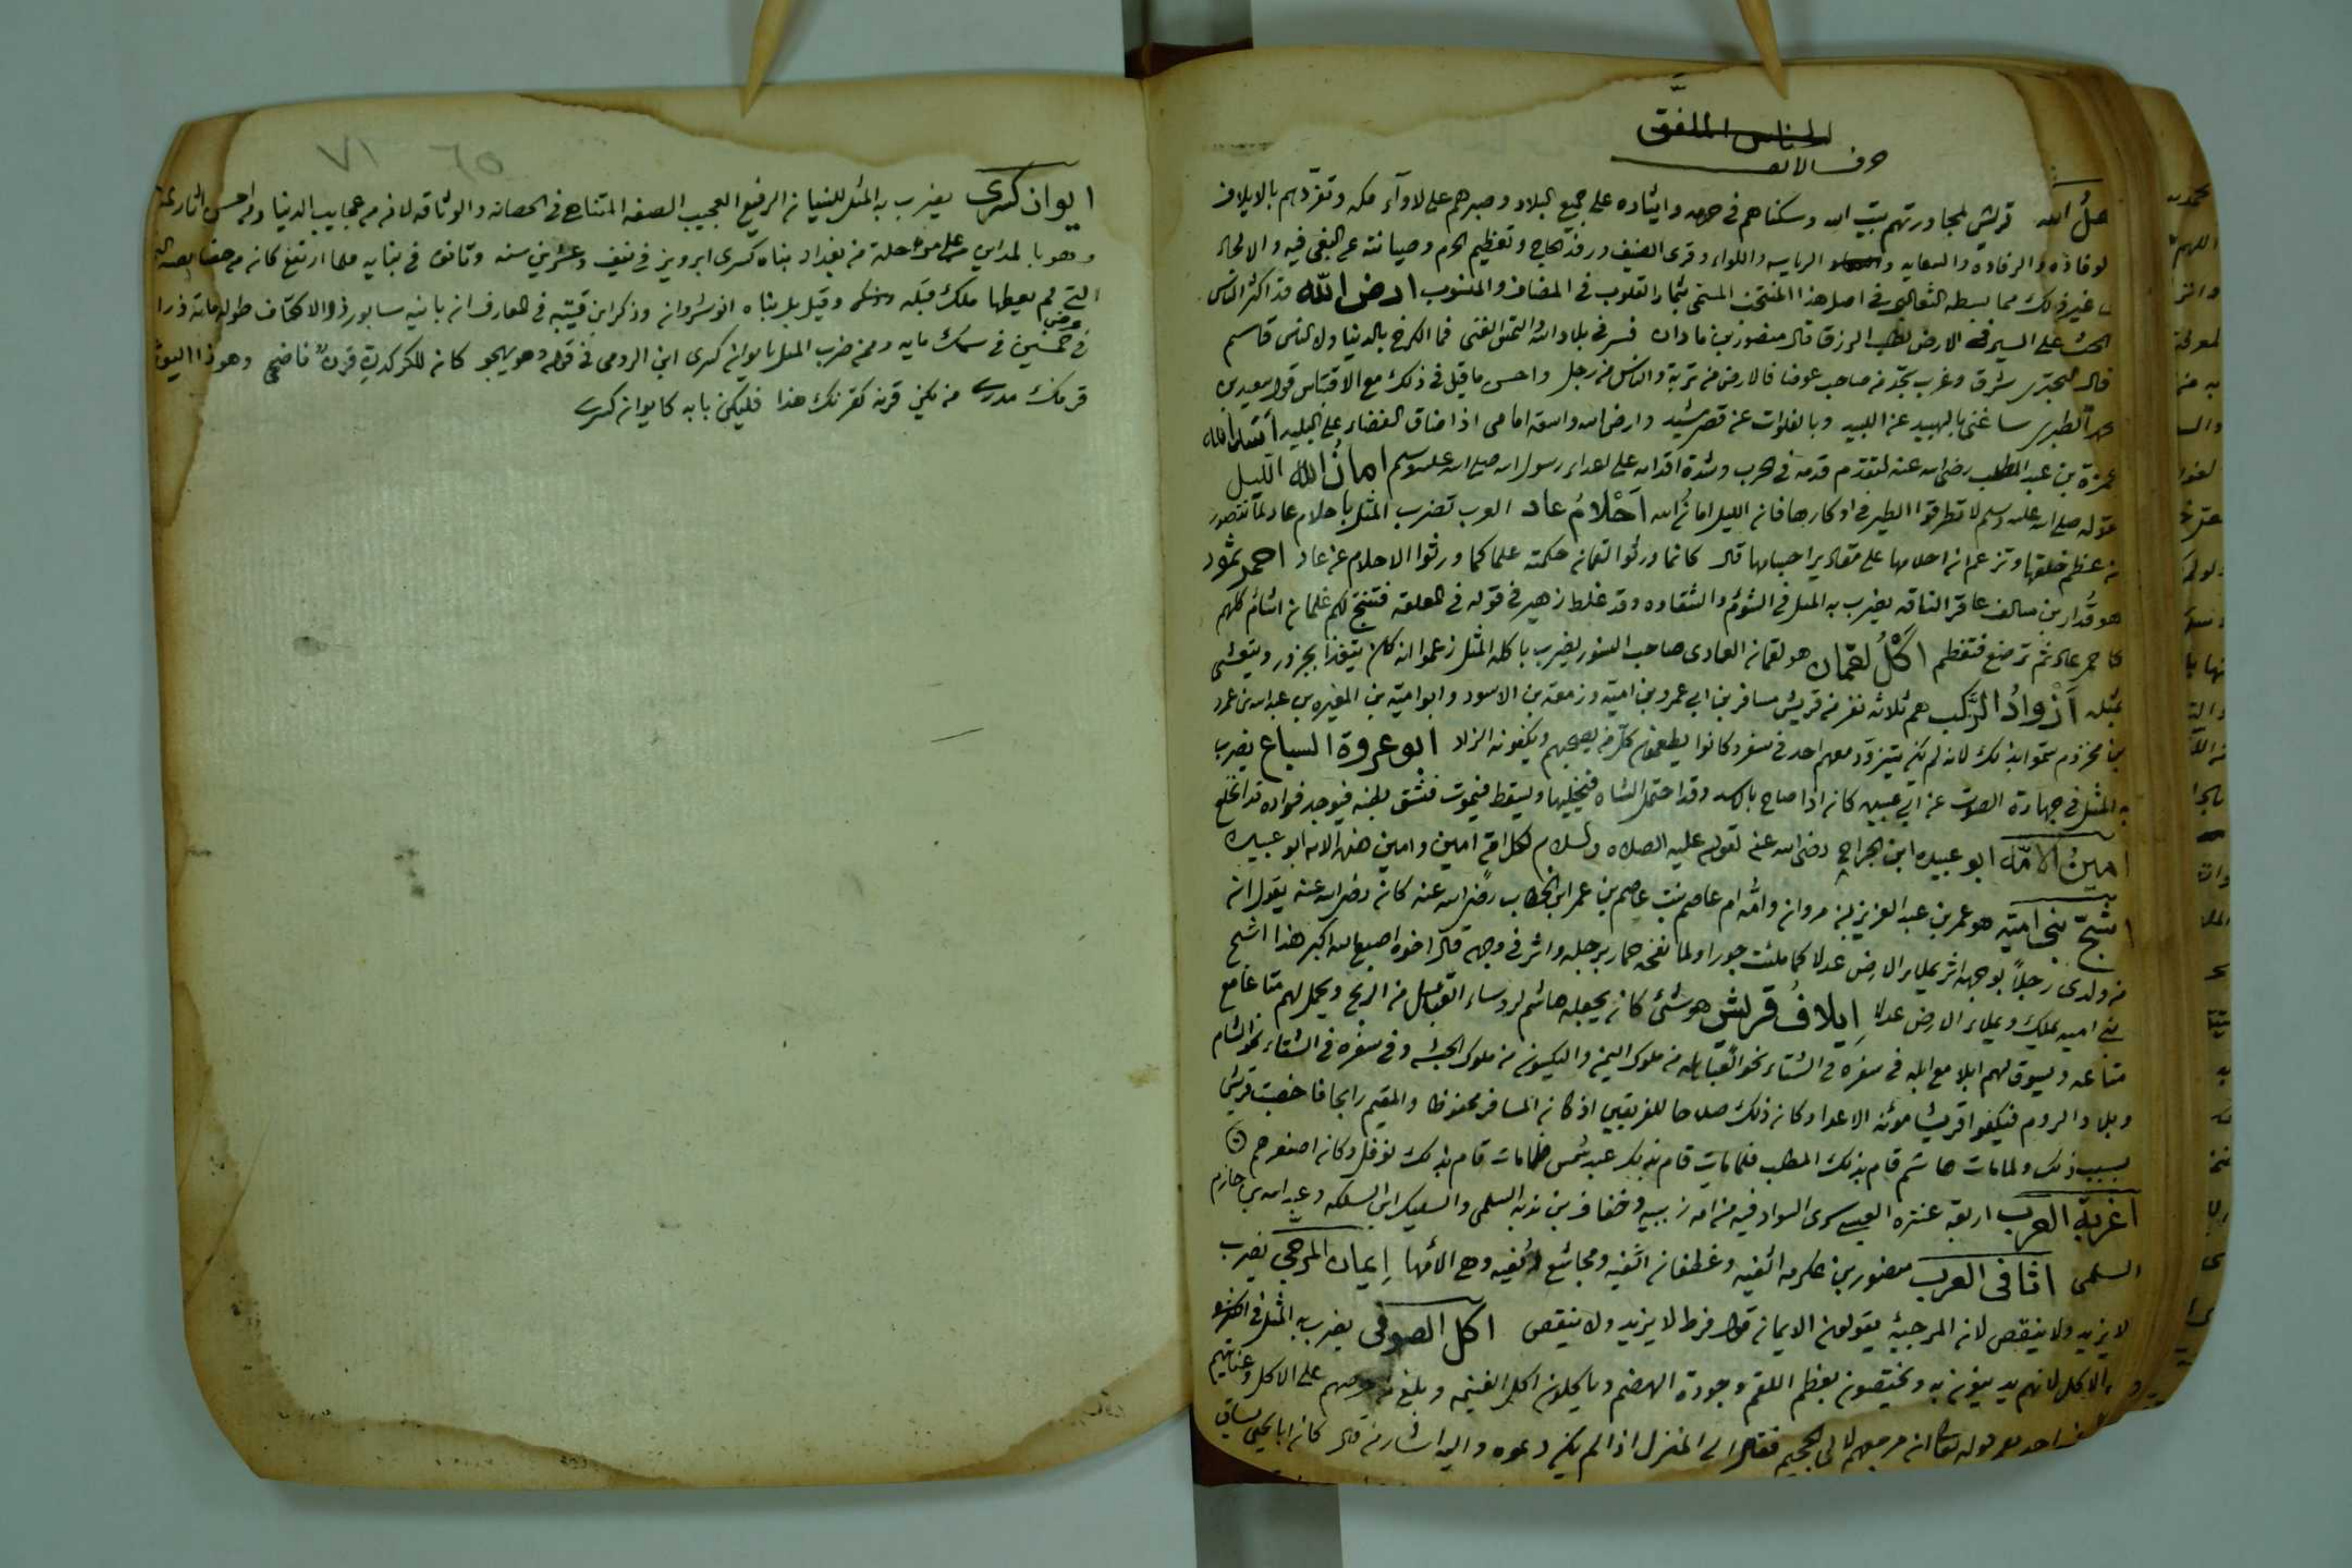 الجناس الملفق
حرف الالف
اهل الله قريش لمجاورتهم بيت الله وسكناهم في حرمه وايثاره على جميع البلاد وصبرهم على لاوآء مكه وتفرّدهم بالايلاف
لوفاده والرفاده والسقايه الرياسه واللواء وقرى الضيف ورفد الحاج وتعظيم الحرم وصيانته عن البغى فيه والالحاد
غير ذلك مما بسطه الثعالبي في اصل هذا المنتخب المسمى بثمار القلوب في المضاف والمنسوب ارض الله قد اكثر الناس
الحث على السير في الارض لطلب الرزق قال منصور بن ماذان فسر في بلاد الله والتمس الغنى فما الكرخ بالدنيا ولا الناس قاسم
قال البحترى شرق وغرب تجد من صاحب عوضا فالارض من تربة والناس من رجل واحسن ما قيل في ذلك مع الاقتباس قول سعيد بن
الطبرى ساغنى بالهبيد عن اللبيد وبالفلوات عن قصر مشيد وارض الله واسعة امامى اذا ضاق الفضاء على البليد اسد الله
حمزة بن عبد المطلب رضى الله عنه لتقدم قدمه في الحرب وشدة اقدامه على اعداء رسول الله صلى الله عليه وسلم امان الله الليل
قوله صلى الله عليه وسلم لا تطرقوا الطير في اوكارها فان الليل امان الله احلام عاد العرب تضرب المثل باحلام عاد لما تتصور
من عظم خلقها وتزعم ان احلامها على مقادير اجسامها قال كانما ورثوا لقمان حكمته علما كما ورثوا الاحلام عن عاد احمر ثمود
هو قدار بن سالف عاقر الناقه يضرب به المثل في الشوم والشقاوه وقد غلط زهير في قوله في المعلقه فتنتج لكم غلمان اشام كلهم
كاحمر عاد ثم ترضع فتفطم اكل لقمان هو لقمان العادى صاحب النسور يضرب باكله المثل زعموا انه كان يتغذا بجزور ويتعشى
بمثله ازواد الركب هم ثلاثه نفر من قريش مسافر بن ابي عمرو بن امية وزمعه بن الاسود وابو امية بن المغيره بن عبد الله بن عمر
بن مخزوم سموا بذلك لانه لم يكن يتزود معهم احد في سفر وكانوا يطعمون كل من يصحبهم ويكفونه الزاد ابو عروة السباع يضرب
به المثل في جهارة الصوت عن ابي عبيده كان اذا صاح بالاسد وقد احتمل الشاه فيخليها ويسقط فيموت فتشق بطنه فيوجد فواده قد انخلع
امين الامّه ابو عبيده ابن الجراح رضى الله عنه لقوله عليه الصلاه والسلام لكل امة امين وامين هذه الامه ابو عبيده
اشج بنى امية هو عمر بن عبد العزيز بن مروان وامه ام عاصم بنت عاصم بن عمر ابن الخطاب رضى الله عنه كان رضى الله عنه يقول ان
من ولدى رجلا بوجهه اثر يملاء الارض عدلا كما ملئت جورا ولما نفحه حمار برجله واثر في وجهه قال اخوه اصبع الله اكبر هذا اشج
بنى اميه يملك ويملاء الارض عدلا ايلاف قريش هو شئ كان يجعله هاشم لروساء القبايل من الربح ويحمل لهم متاعا مع
متاعه ويسوق لهم ابلا مع ابله في سفره في الشتاء نحو من ملوك اليمن واليكسوم من ملوك الحبشه وفي سفره في الشتاء نحو الشام
وبلاد الروم فيكفوا قريشا مؤنه الاعداء وكان ذلك صلاحا للفريقين اذ كان المسافر محفوظا والمقيم رابحا فاخصبت قريش
بسبب ذلك ولما مات هاشم قام بذلك المطلب فلما مات قام بذلك عبد شمس فلما مات قام بذلك نوفل وكان اصغرهم
اغربة العرب اربعه عنتره العبسى سرى السواد فيه من امه زبيبه وخفاف بن ندبه السلمى والسليك ابن السلكه وعبد الله بن خازم
السلمى اثافى العرب منصور بن عكرمه اثفيه وغطفان اثفيه ومجاشع اثفيه وهى الامها ايمان المرجى يضرب
لا يزيد ولا ينقص لان المرجيه يقولون الايمان قول فرط لا يزيد ولا ينقص اكل الصوفى يضرب به المثل في
الاكل لانهم يدينون به ويختصون بعظم اللقم وجودة الهضم وياكلون اكل الغنيمه وبلغ من حرصهم على الاكل وعنايتهم
احد مع قوله تعالى ان مرجعهم لالى الجحيم فقال الى المنزل اذا لم يكن دعوه واليه اشار من قال كان ابا يحيى يساق
٦٥ ٧١
ايوان كسرى يضرب به المثل للبنيان الرفيع العجيب الصنعه المتناهى في الحصانه والوثاقه لانه من عجايب الدنيا ومن احسن اثار
وهو بالمداين على مرحلة من بغداد بناه كسرى ابرويز في نيف وعشرين سنه وتانق في بنايه فلما ارتفع كان من خصايصه
التي لم يعطها ملك قبله وقيل بل بناه انوشروان وذكر ابن قتيبه في المعارف ان بانيه سابور ذو الاكتاف طوله مايه ذراع
في عرض خمسين في سمك مايه وممن ضرب المثل بايوان كسرى ابن الرومى في قوله وهو يهجو كان للكركدن قرن فاضحى وهو ذا اليوم
قرنك من يكن قرنه كقرنك هذا فليكن بابه كايوان كسرى